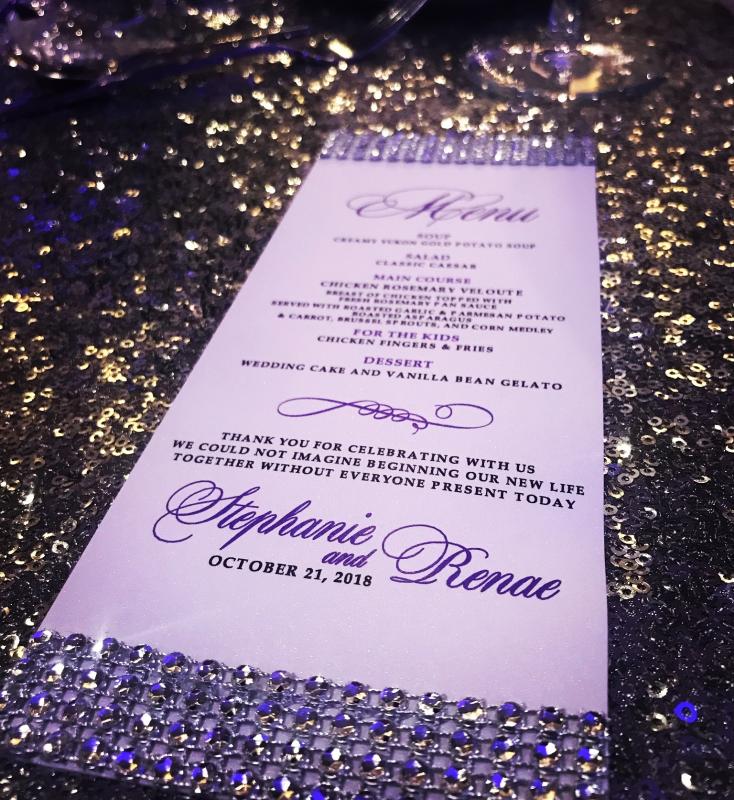 Menu
SOUP
CREAMY YUKON GOLD POTATO SOUP
SALAD
CLASSIC CAESAR
MAIN COURSE
CHICKEN ROSEMARY VELOUTE
BREAST OF CHICKEN TOPPED WITH
FRESH ROSEMARY PAN SAUCE
SERVED WITH ROASTED GARLIC & PARMESAN POTATO
ROASTED ASPARAGUS
& CARROT, BRUSSEL SPROUTS, AND CORN MEDLEY
FOR THE KIDS
CHICKEN FINGERS & FRIES
DESSERT
WEDDING CAKE AND VANILLA BEAN GELATO
THANK YOU FOR CELEBRATING WITH US
WE COULD NOT IMAGINE BEGINNING OUR NEW LIFE
TOGETHER WITHOUT EVERYONE PRESENT TODAY
Stephanie and Renae
OCTOBER 21, 2018